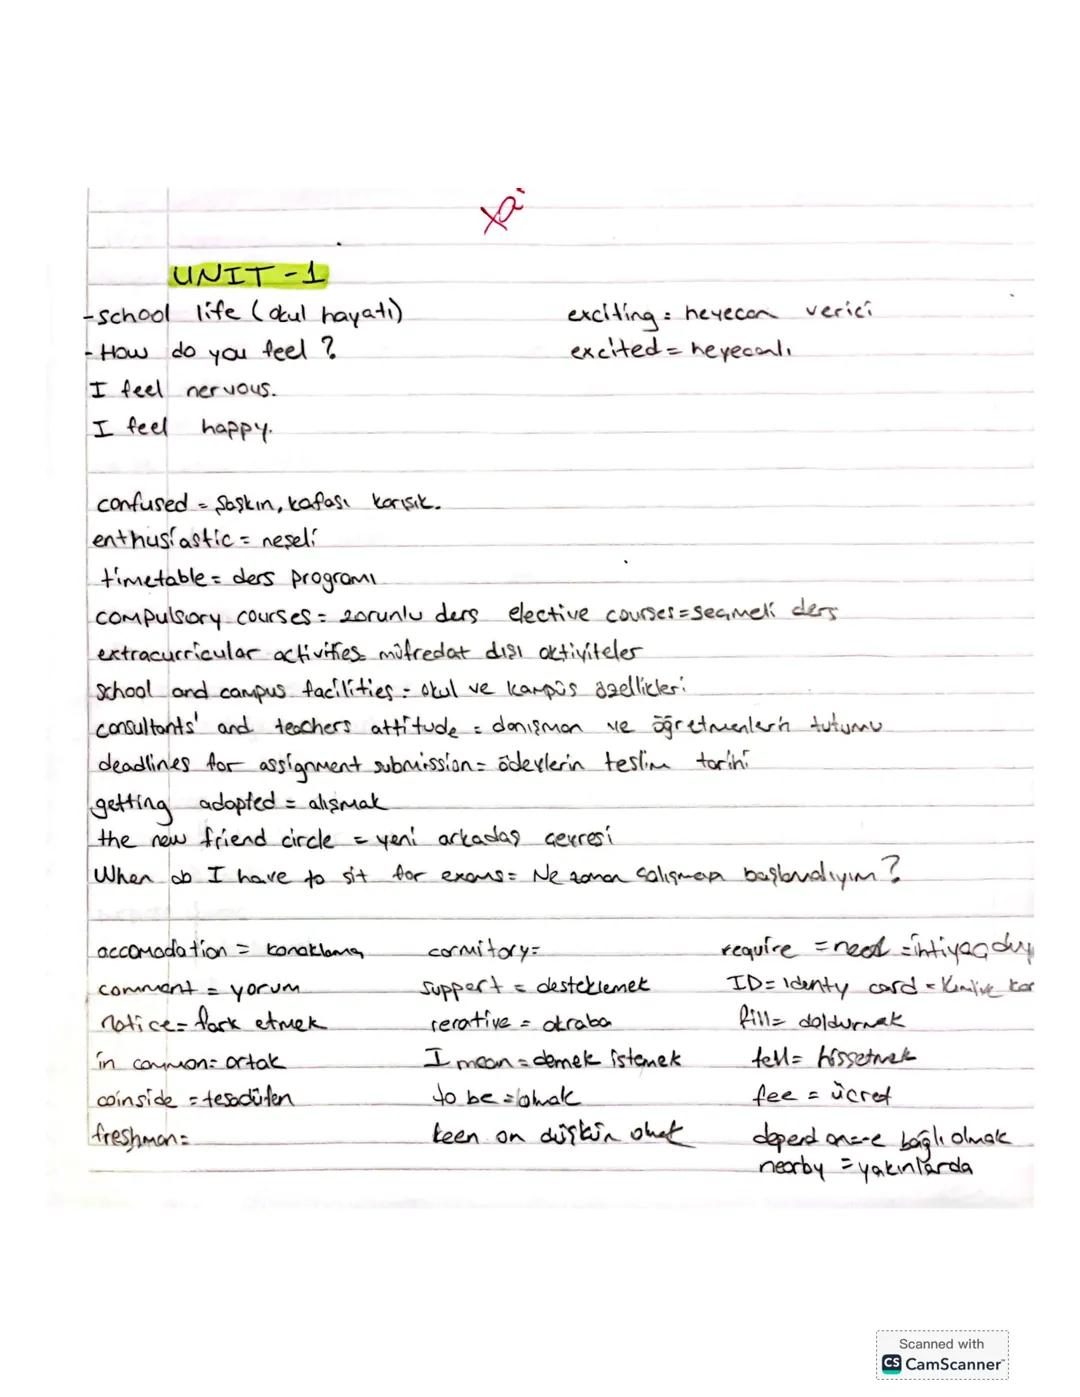 UNIT-1
-school life (okul hayatı) exciting = heyecan verici
-How do you feel ? excited = heyecanlı
I feel nervous.
I feel happy.
confused = şaşkın, kafası karışık.
enthusiastic = neşeli
timetable = ders programı
compulsory courses = zorunlu ders elective courses = seçmeli ders
extracurricular activities = müfredat dışı aktiviteler
school and campus facilities = okul ve kampüs özellikleri
consultants' and teachers attitude = danışman ve öğretmenlerin tutumu
deadlines for assignment submission = ödevlerin teslim tarihi
getting adapted = alışmak
the new friend circle = yeni arkadaş çevresi
When do I have to sit for exams = Ne zaman başlamalıyım ?
accomodation = konaklama cormitory = require = need = ihtiyaç duy
comment = yorum support = desteklemek ID = Identy card = Kimlik kar
notice = fark etmek rerative = akraba fill = doldurmak
in common = ortak I mean = demek istemek fell = hissetmek
coinside = tesadüfen to be = olmak fee = ücret
freshman = keen on düşkün olmak depend on = -e bağlı olmak
nearby = yakınlarda
Scanned with
CS CamScanner